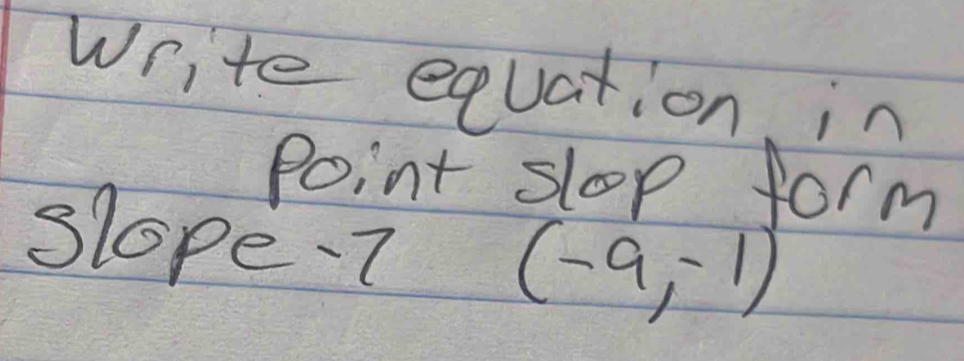 Write equation in
point slop form
slope -7 (-9,-1)